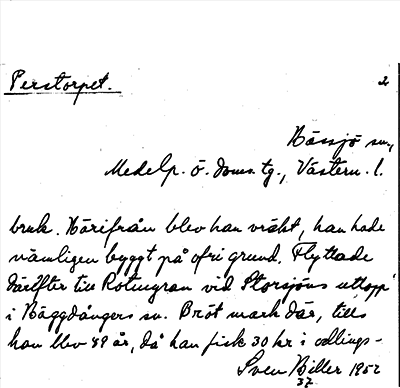 Perstorpet. 2
Hässjö sn.,
Medelp. ö. doms. tg., Västern. l.
bruk. Härifrån blev han vräkt, han hade
nämligen byggt på ofri grund. Flyttade
därefter till Rotmyran vid Storsjöns utlopp
i Häggdångers sn. Bröt mark där, tills
han blev 49 år, då han fick 30 kr i odlings-
Sven Biller 1952
37.